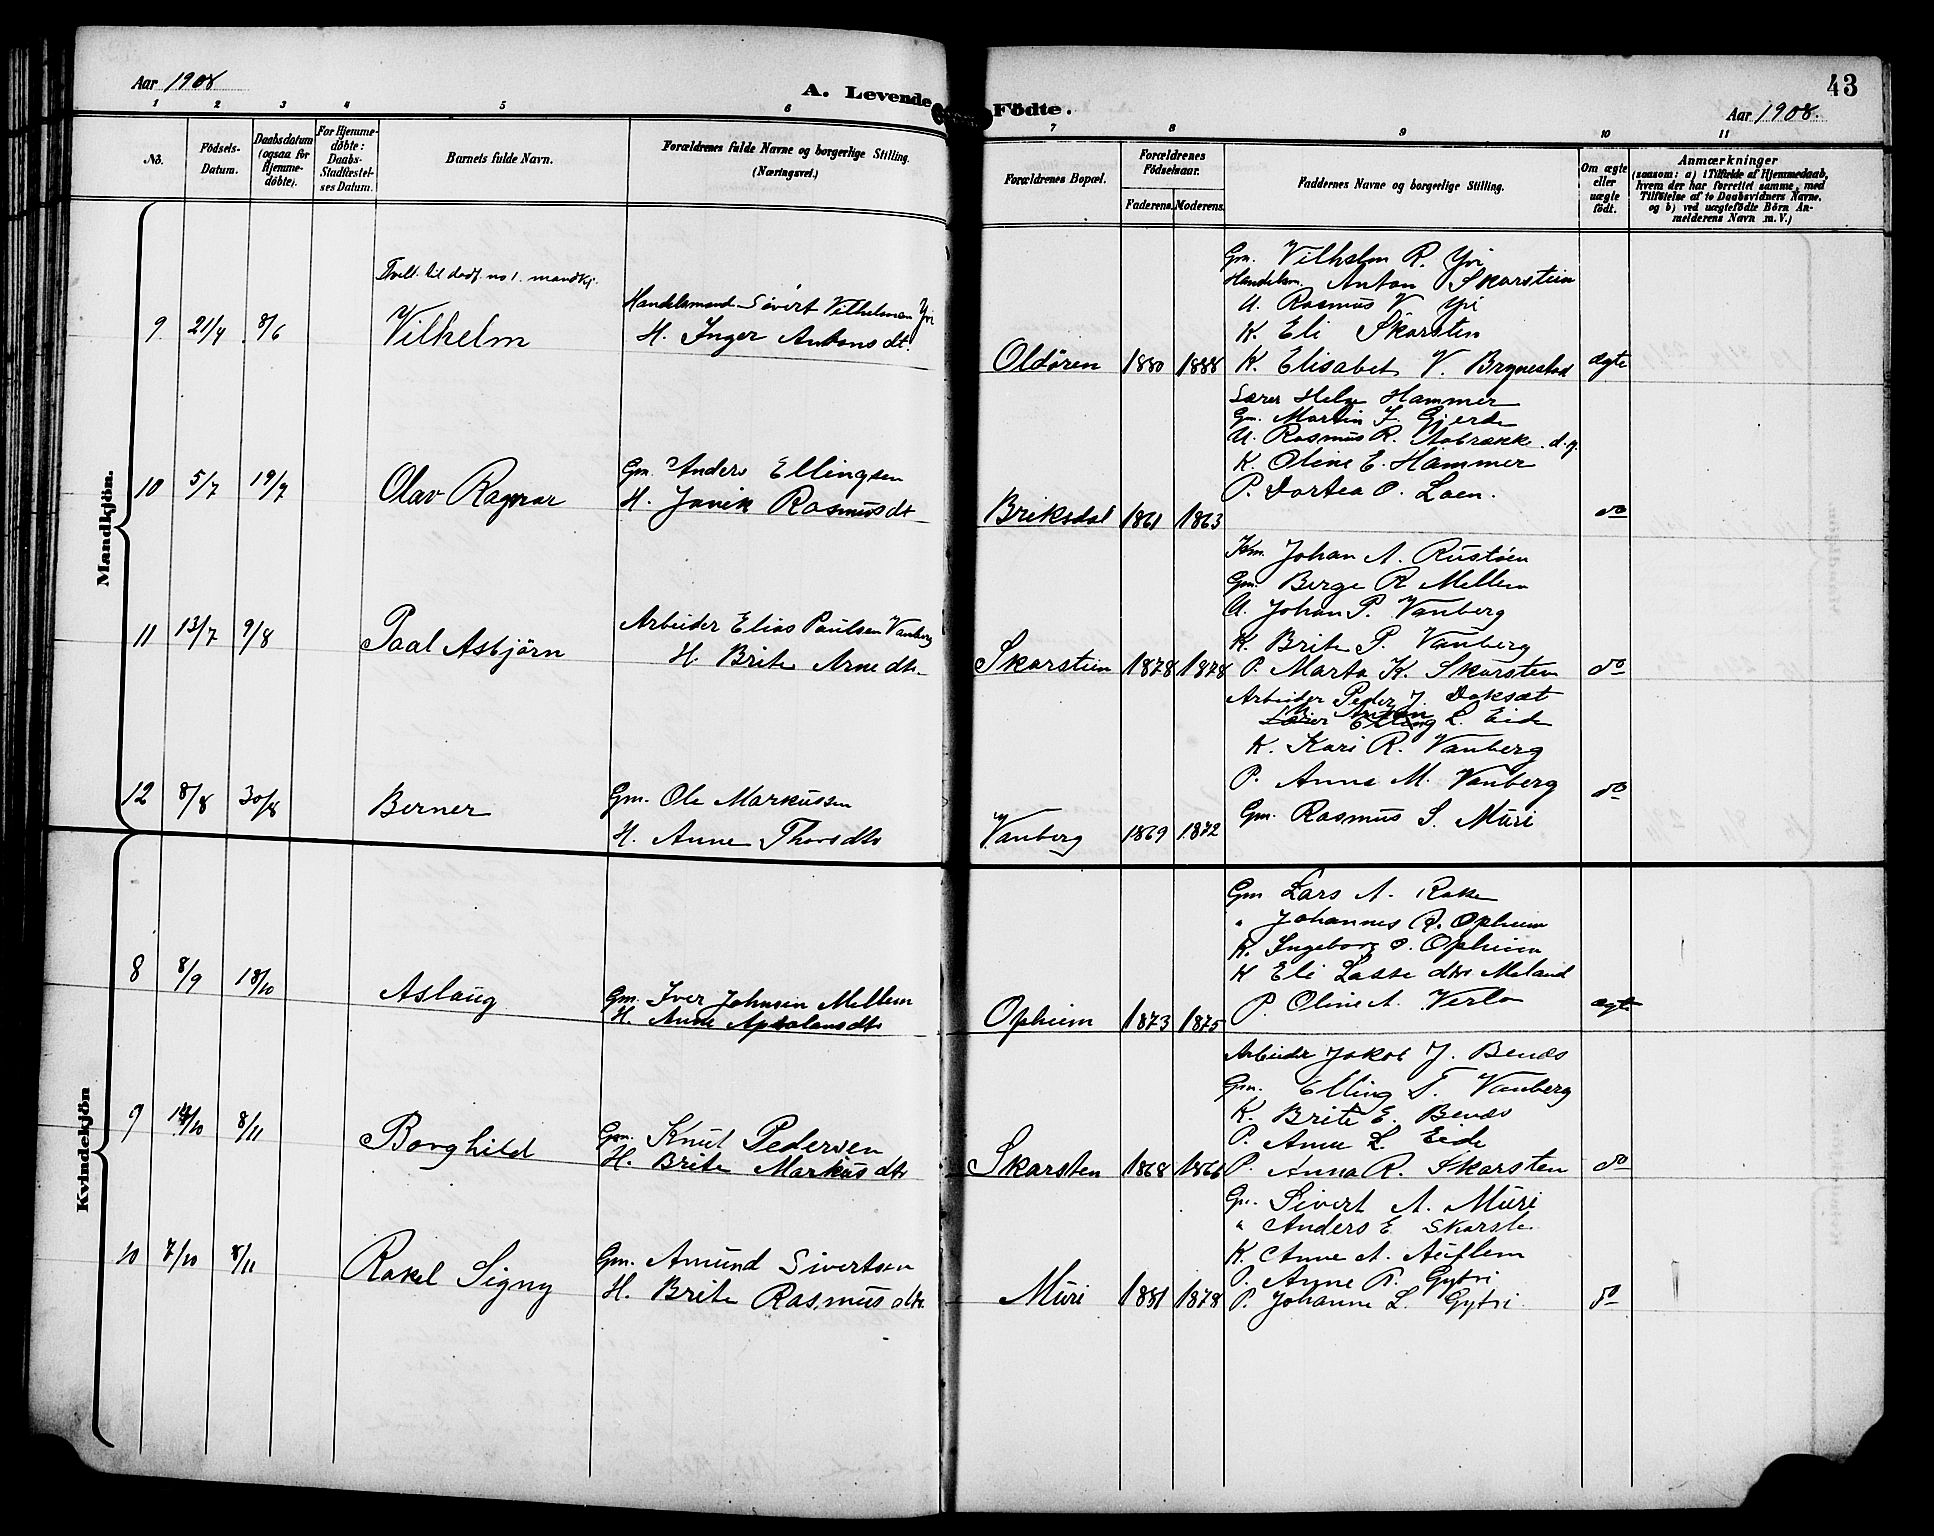 Aar 1908
A. Levende Födte.
43
Aar 1908.
1 2 3 4 5 6 7 8 9 10 11
No.
Födsels-Datum.
Daabsdatum (ogsaa for Hjemme-døbte).
For Hjemme-døbte: Daabs-Stadfæstel-ses Datum.
Barnets fulde Navn.
Forældrenes fulde Navne og borgerlige Stilling. (Næringsvei.)
Forældrenes Bopæl.
Forældrenes Födselsaar.
Faderens. Moderens.
Faddernes Navne og borgerlige Stilling.
Om ægte eller uægte födt.
Anmærkninger
(saasom: a) i Tilfælde af Hjemmedaab, hvem der har forrettet samme, med Tilföielse af to Daabsvidners Navne. og b) ved uægtefödte Börn An-melderens Navn m. V.)
Mandkjön.
Tvill. til dødf. no 1. mandkj.
9 21/4 8/6 Vilhelm
Handelsmand Sivert Vilhelmsen Yri
H. Inger Antonsdt.
Oldøren 1880 1888
Gm. Vilhelm R. Yri
Handelsm. Anton Skarstein
U. Rasmus V. Yri
K. Eli Skarsten
K. Elisabet V. Brynestad ægte
10 5/7 19/7 Olav Ragnar
Gm. Anders Ellingsen
H. Janik Rasmusdt
Briksdal 1861 1863
Lærer Helge Hammer
Gm. Martin J. Gjerde
U. Rasmus R. Aabrække d.y.
K. Oline E. Hammer
P. Dortea O. Loen.
do
11 13/7 9/8 Paal Asbjørn
Arbeider Elias Paulsen Vanberg
H. Brite Arnedtr.
Skarstein 1878 1878
Johan A. Rustøen
Gm. Berge R. Mellem
U. Johan P. Vanberg
K. Brite P. Vanberg
P. Marta K. Skarsten do
12 8/8 30/8 Berner
Gm. Ole Markussen
H. Anne Thorsdtr
Vanberg 1869 1872
Arbeider Peder J. Doksæt
Anton L. Eide
K. Kari R. Vanberg
P. Anna M. Vanberg do
Gm. Rasmus S. Muri
Kvindekjön
8 8/9 18/10 Aslaug
Gm. Iver Johnsen Mellem
H. Anne Apsalonsdtr
Opheim 1873 1875
Gm Lars A. Rake
" Johannes R. Opheim
K. Ingeborg O. Opheim
K Eli Lassedtr Meland
P. Oline A. Verlo ægte
9 /10 8/11 Borghild
Gm. Knut Pedersen
H. Brite Markusdtr
Skarsten 1868 1866
Arbeider Jakob J. Benes
Gm. Elling T. Vanberg
K. Brite E. Benes
P. Anne L. Eide
P. Anna R. Skarsten do
10 7/10 8/11 Rakel Signy
Gm. Amund Sivertsen
H. Brite Rasmusdtr.
Muri 1881 1878
Gm. Sivert A. Muri
" Anders E. Skarste
K. Anne A. Auflem
P. Anne R. Gytri
P. Johanne L. Gytri do